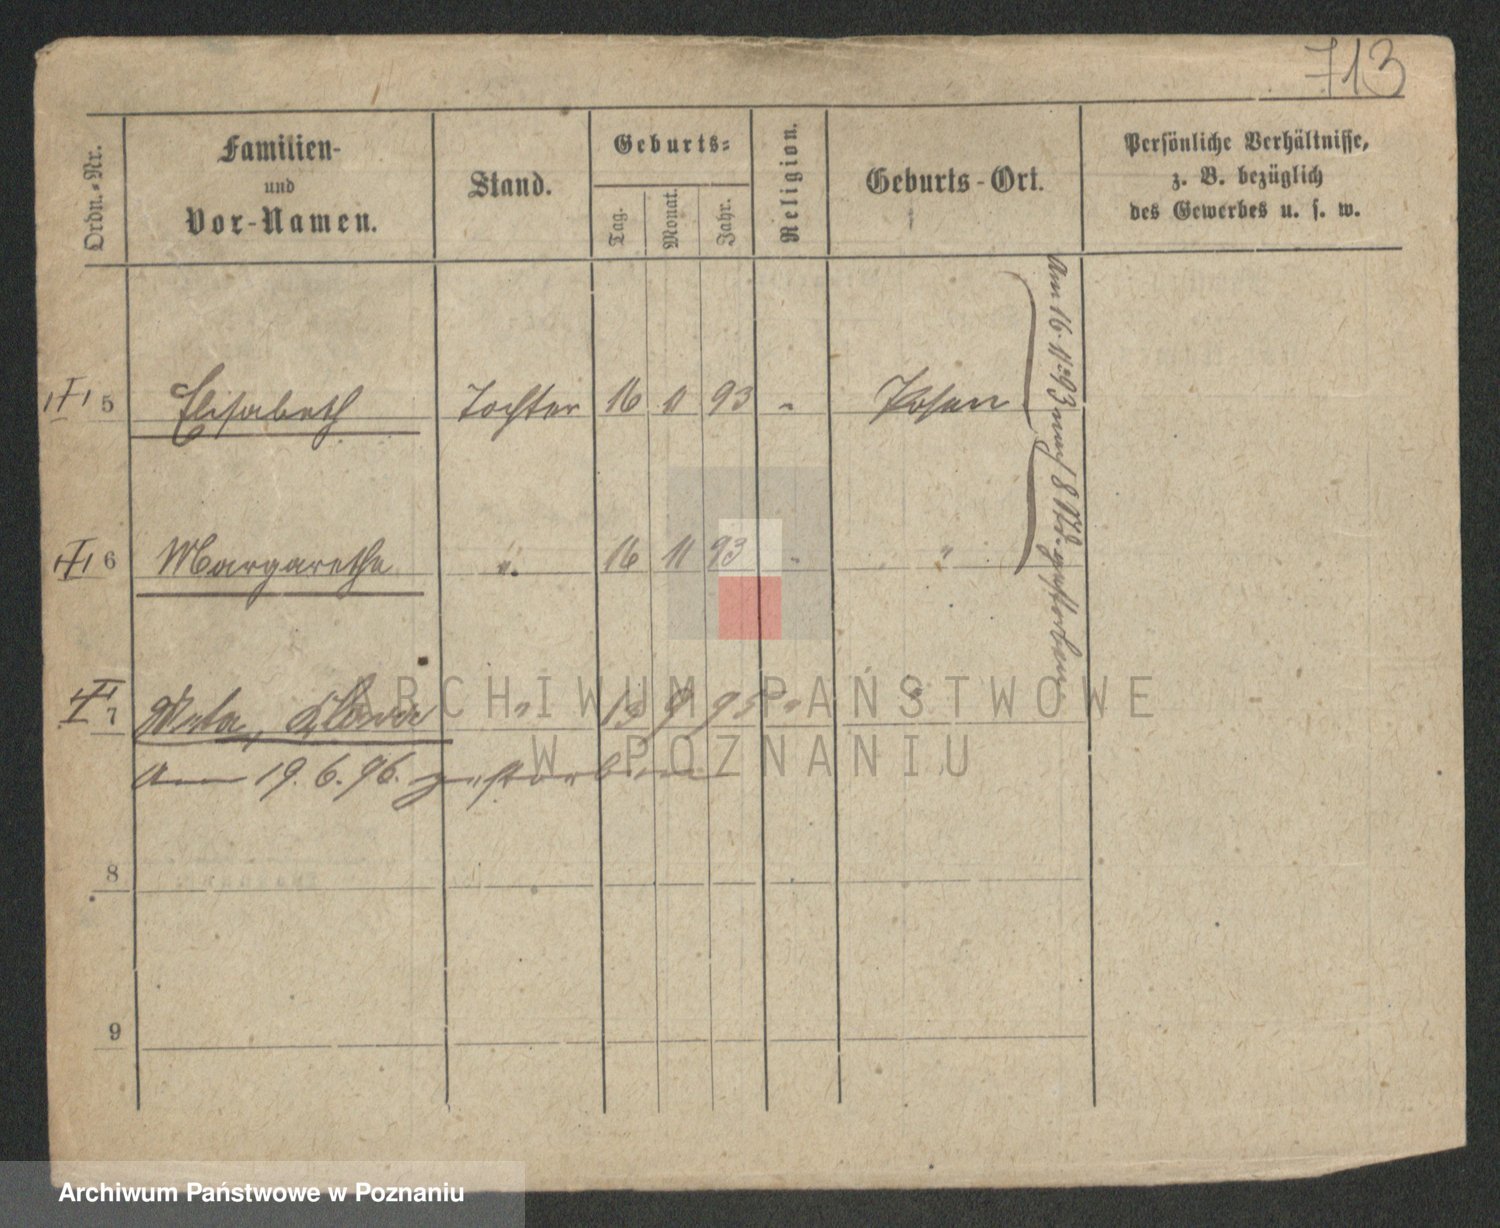 713
Ordn.-Nr.
Familien-
und
Vor-Namen.
Stand.
Geburts-
Tag.
Monat.
Jahr.
Religion.
Geburts-Ort.
Persönliche Verhältnisse,
z. B. bezüglich
des Gewerbes u. s. w.
5 Elisabeth Tochter 16 11 93 " Posen
6 Margarethe " 16 11 93 " "
Am 16.11.93 nach 8 gestorben
7 Meta, Klara " 13 9 95 " "
am 19.6.96. gestorben
8
9
ARCHIWUM PAŃSTWOWE
W POZNANIU
Archiwum Państwowe w Poznaniu